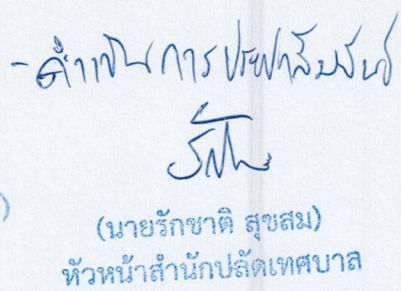 - ดำเนินการประชาสัมพันธ์
)
(นายรักชาติ สุขสม)
หัวหน้าสำนักปลัดเทศบาล